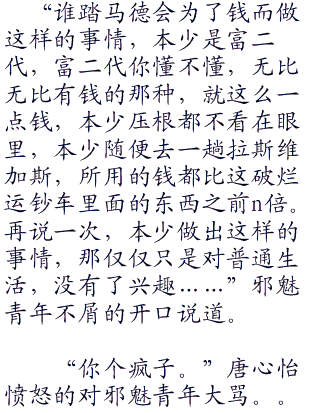 “谁踏马德会为了钱而做
这样的事情，本少是富二
代，富二代你懂不懂，无比
无比有钱的那种，就这么一
点钱，本少压根都不看在眼
里，本少随便去一趟拉斯维
加斯，所用的钱都比这破烂
运钞车里面的东西之前n倍。
再说一次，本少做出这样的
事情，那仅仅只是对普通生
活，没有了兴趣……”邪魅
青年不屑的开口说道。
“你个疯子。”唐心怡
愤怒的对邪魅青年大骂。。